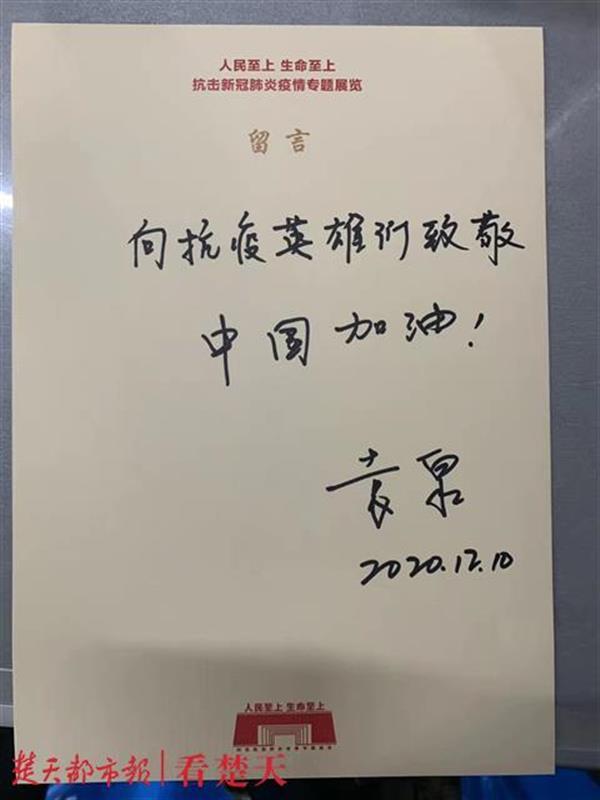 人民至上 生命至上
抗击新冠肺炎疫情专题展览
留言
向抗疫英雄们致敬
中国加油!
袁泉
2020.12.10
人民至上 生命至上
楚天都市报|看楚天